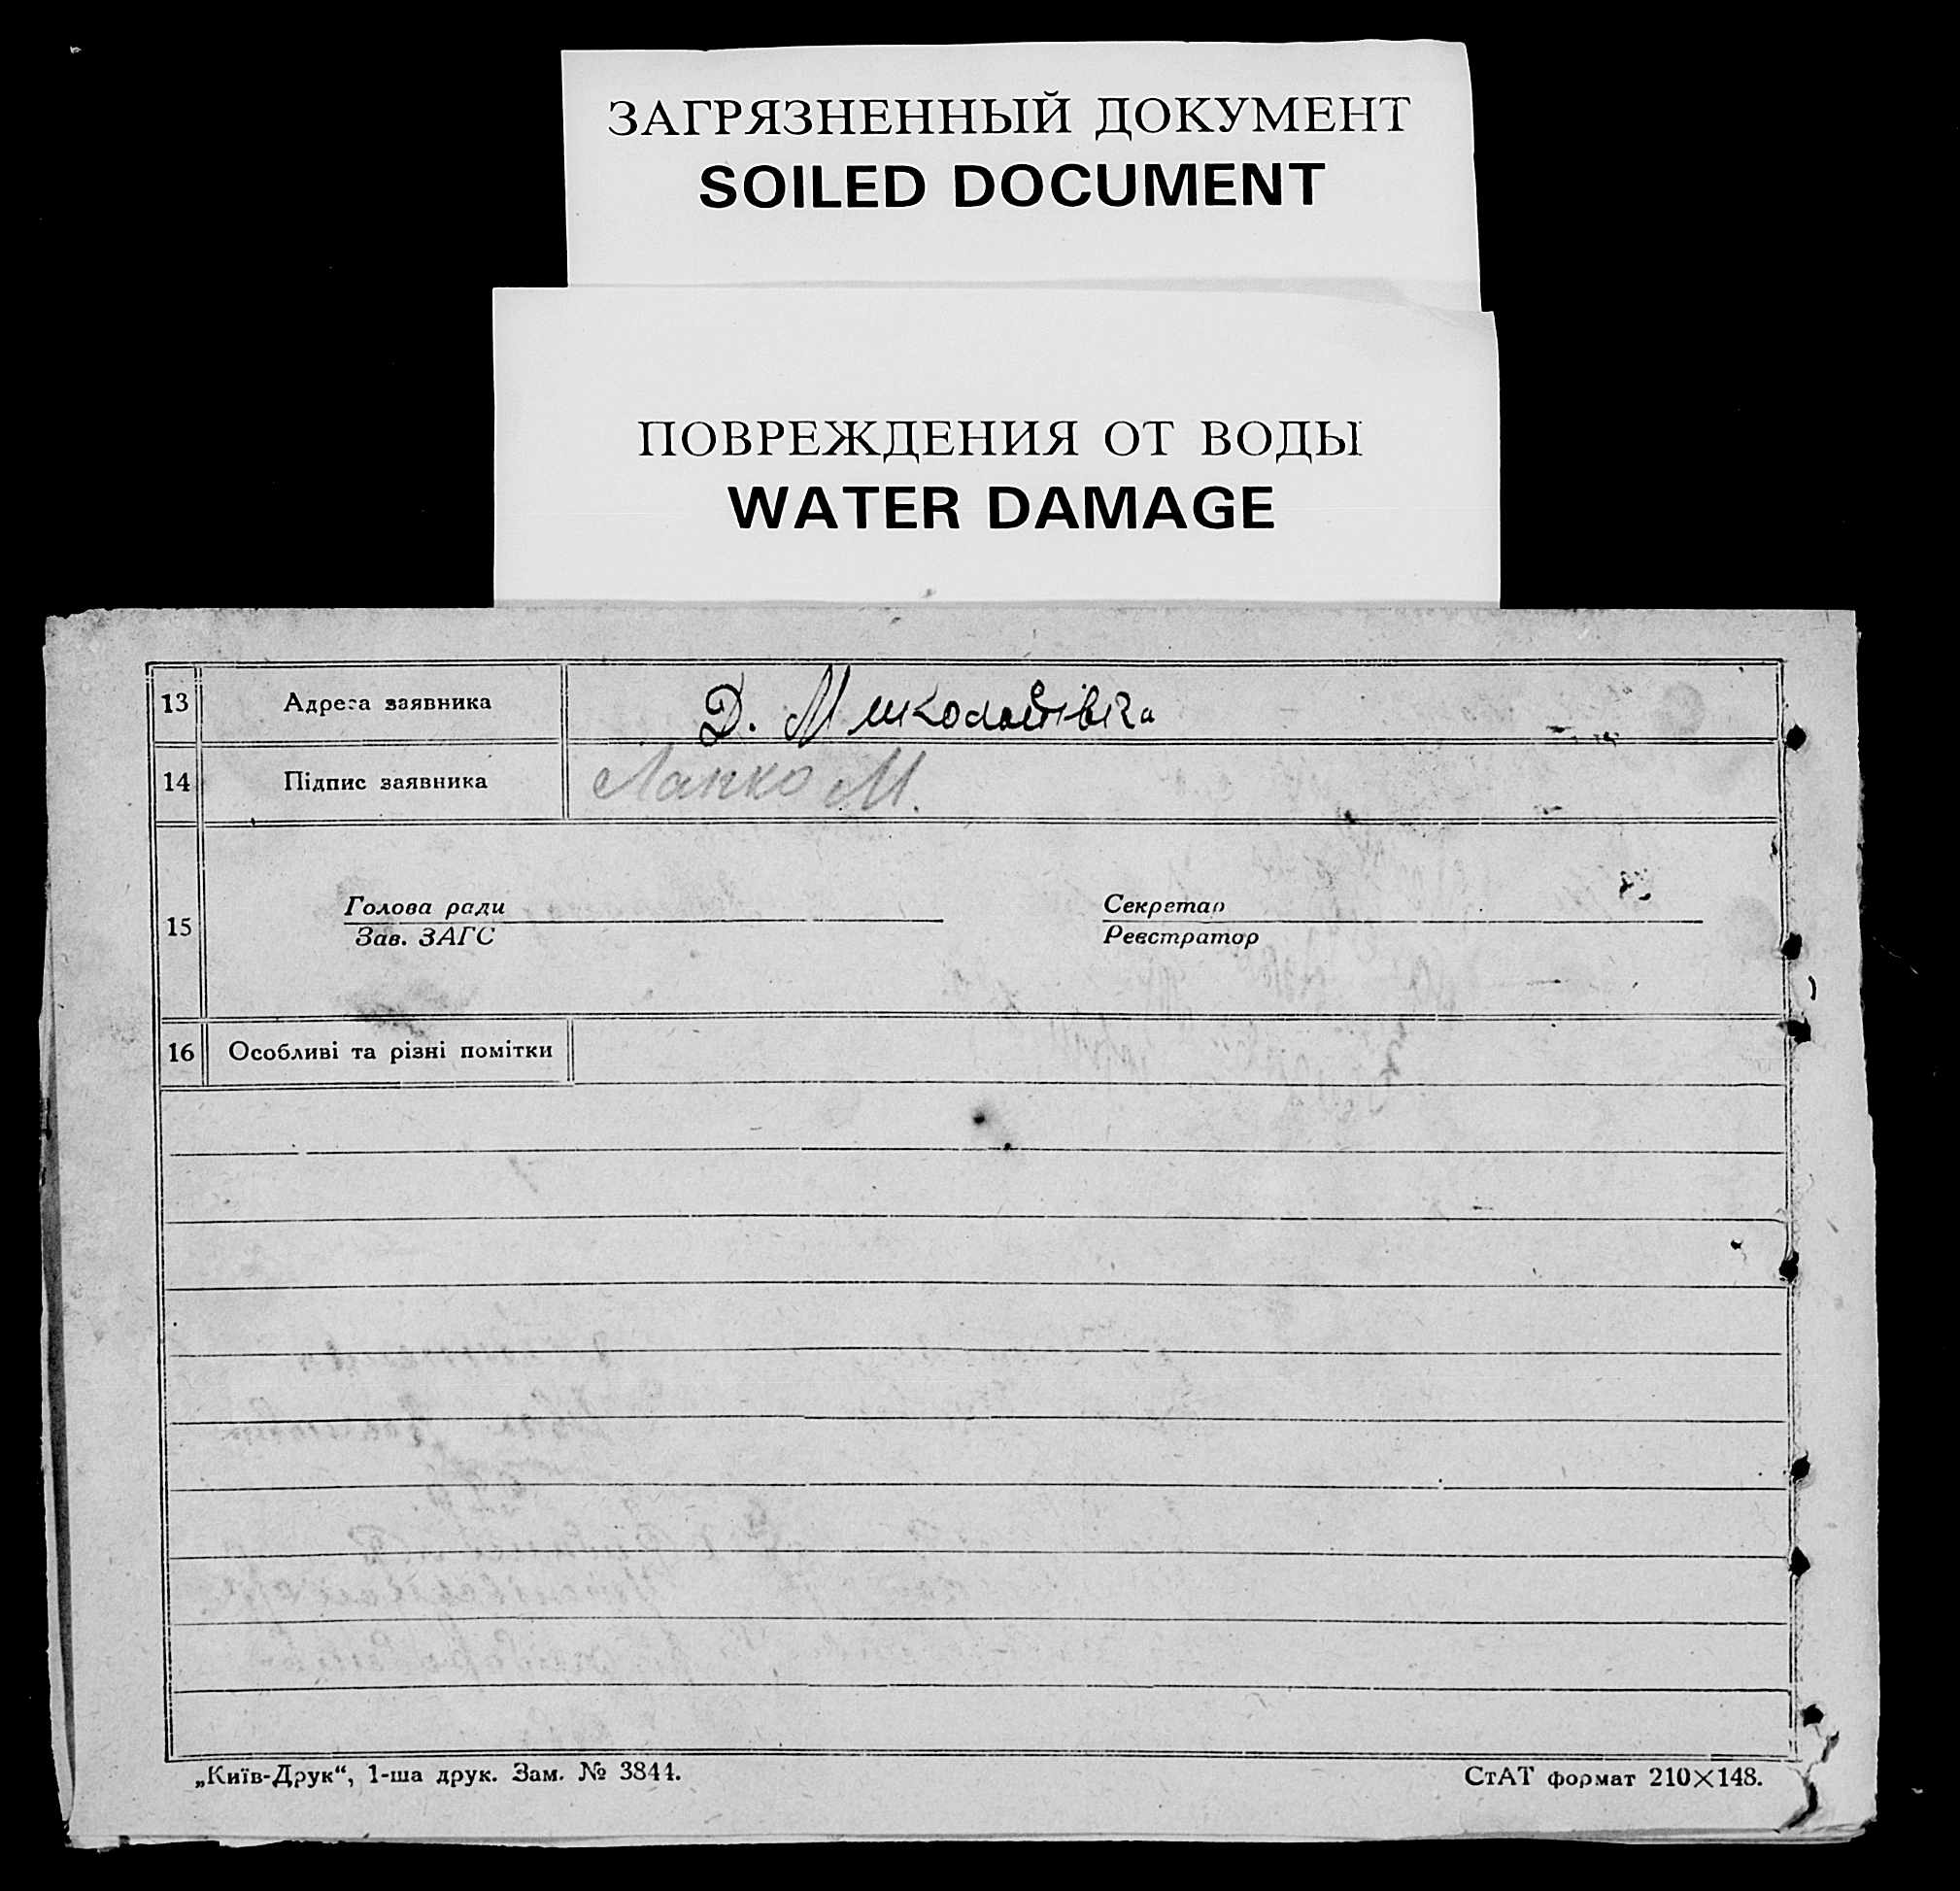 ЗАГРЯЗНЕННЫЙ ДОКУМЕНТ
SOILED DOCUMENT
ПОВРЕЖДЕНИЯ ОТ ВОДЫ
WATER DAMAGE
13 Адреса заявника Д. Миколаївка
14 Підпис заявника Лапко М.
15 Голова ради Секретар
Зав. ЗАГС Реєстратор
16 Особливі та різні помітки
„Київ-Друк“, 1-ша друк. Зам. № 3844. СтАТ формат 210×148.